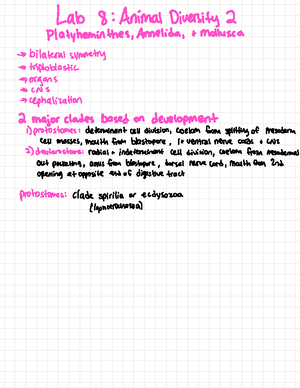 Lab 8: Animal Diversity 2
Platyhelminthes, Annelida, + Mollusca
→ bilateral symmetry
→ triploblastic
→ organs
→ CNS
→ cephalization
2 major clades based on development
1) protostomes: determinant cell division, coelom from splitting of mesoderm
cell masses, mouth from blastopore, 1+ ventral nerve cords + CNS
2) deuterostome: radial + indeterminant cell division, coelom from mesodermal
out pocketing, anus from blastopore, dorsal nerve cord, mouth from 2nd
opening at opposite end of digestive tract
protostomes: clade spiralia or ecdysozoa